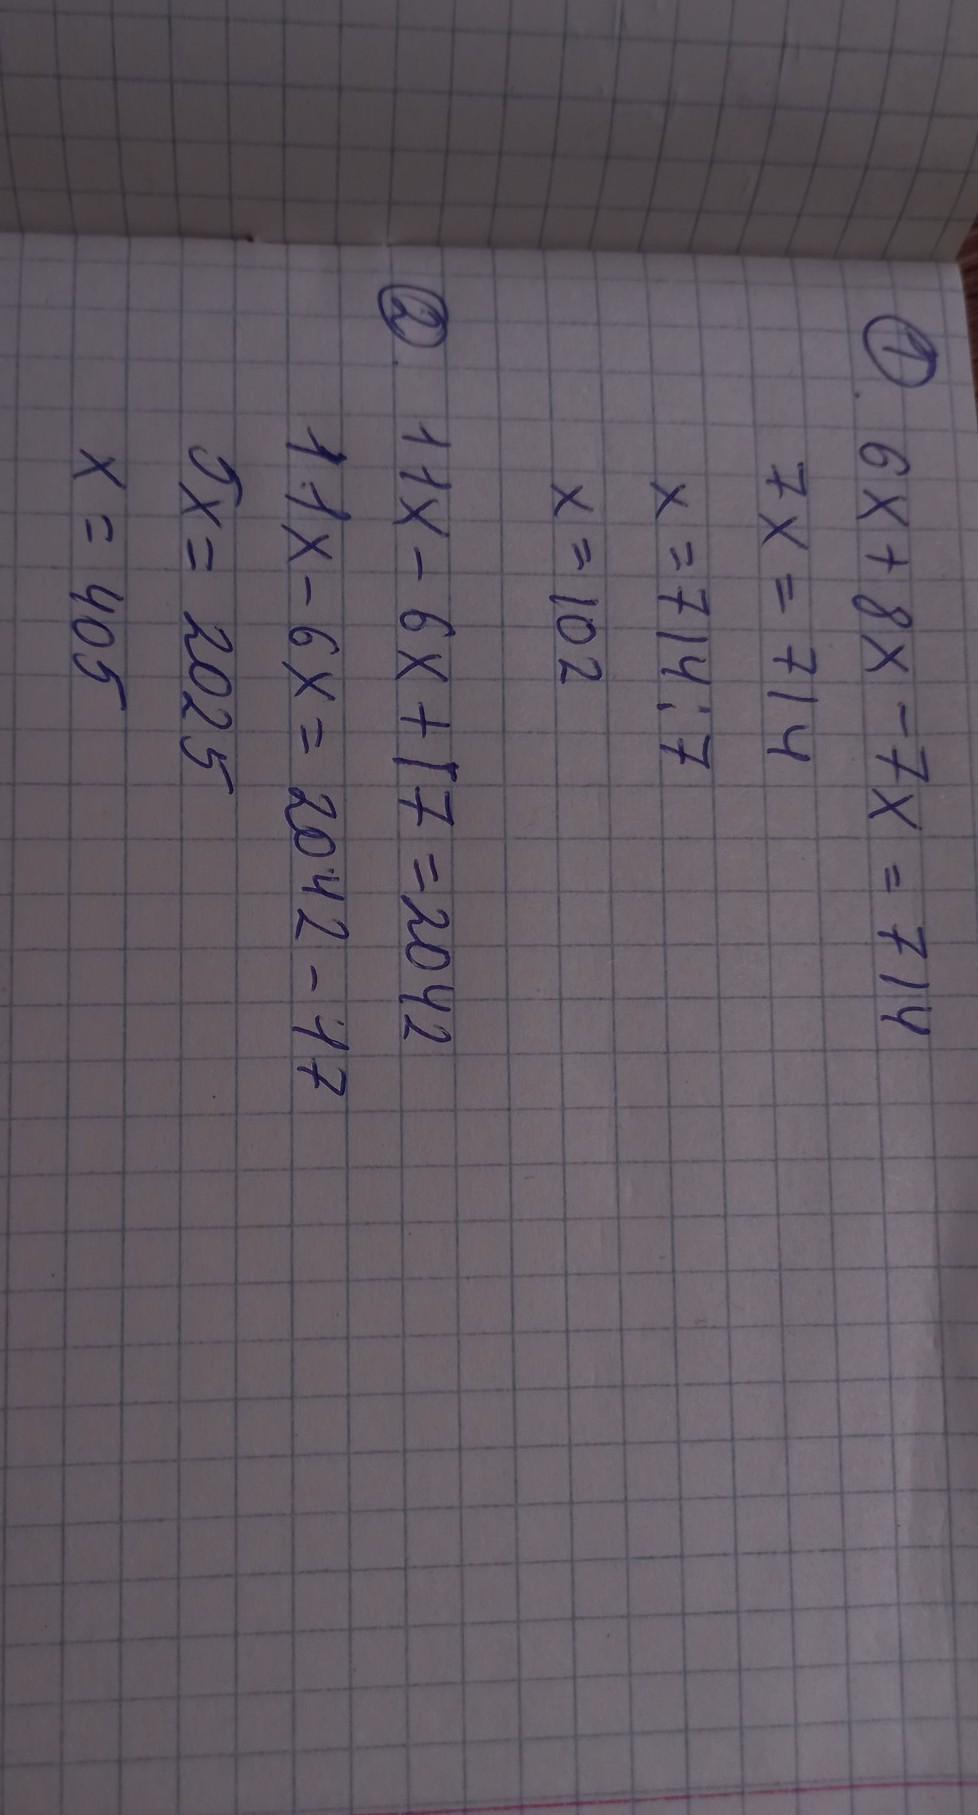 ① 6x + 8x - 7x = 714
7x = 714
x = 714:7
x = 102
② 11x - 6x + 17 = 2042
11x - 6x = 2042 - 17
5x = 2025
x = 405